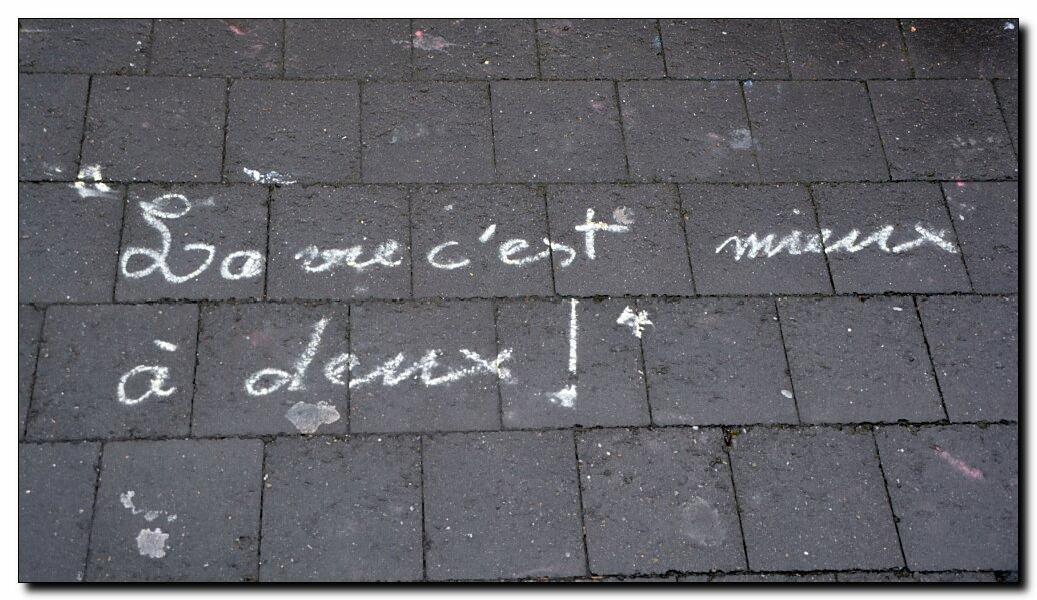 "La vie c'est mieux
à deux!"